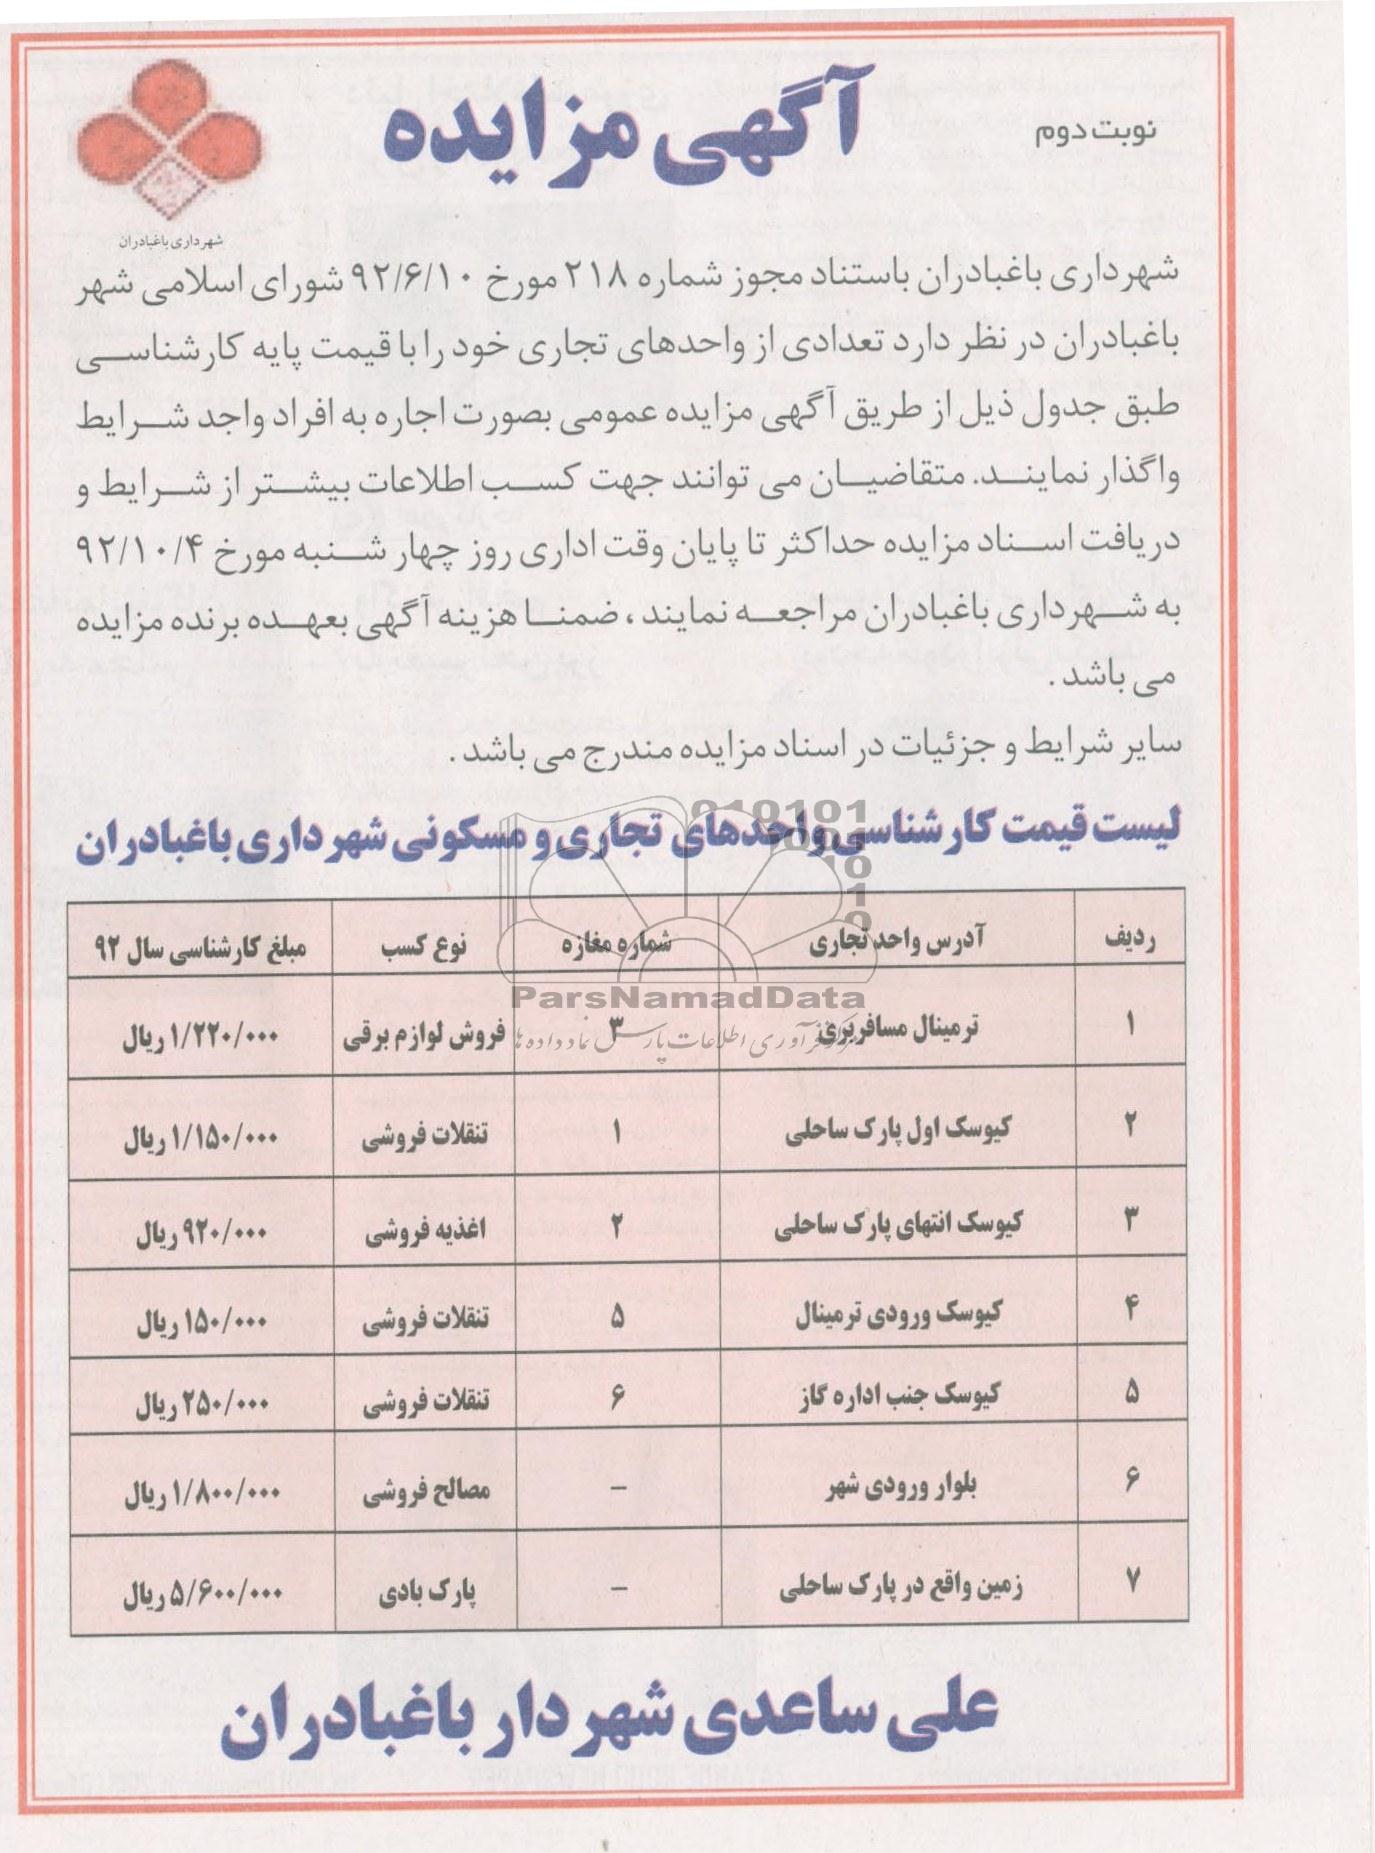 نوبت دوم
آگهی مزایده
شهرداری باغبادران
شهرداری باغبادران باستناد مجوز شماره ۲۱۸ مورخ ۹۲/۶/۱۰ شورای اسلامی شهر
باغبادران در نظر دارد تعدادی از واحدهای تجاری خود را با قیمت پایه کارشناسی
طبق جدول ذیل از طریق آگهی مزایده عمومی بصورت اجاره به افراد واجد شرایط
واگذار نمایند. متقاضیان می توانند جهت کسب اطلاعات بیشتر از شرایط و
دریافت اسناد مزایده حداکثر تا پایان وقت اداری روز چهار شنبه مورخ ۹۲/۱۰/۴
به شهرداری باغبادران مراجعه نمایند، ضمنا هزینه آگهی بعهده برنده مزایده
می باشد.
سایر شرایط و جزئیات در اسناد مزایده مندرج می باشد.
لیست قیمت کارشناسی واحدهای تجاری و مسکونی شهرداری باغبادران
ردیف آدرس واحد تجاری شماره مغازه نوع کسب مبلغ کارشناسی سال ۹۲
ParsNamadData
۱ ترمینال مسافربری ۳ فروش لوازم برقی ۱/۲۲۰/۰۰۰ ریال
مرکز فرآوری اطلاعات پارس نماد داده ها
۲ کیوسک اول پارک ساحلی ۱ تنقلات فروشی ۱/۱۵۰/۰۰۰ ریال
۳ کیوسک انتهای پارک ساحلی ۲ اغذیه فروشی ۹۲۰/۰۰۰ ریال
۴ کیوسک ورودی ترمینال ۵ تنقلات فروشی ۱۵۰/۰۰۰ ریال
۵ کیوسک جنب اداره گاز ۶ تنقلات فروشی ۲۵۰/۰۰۰ ریال
۶ بلوار ورودی شهر - مصالح فروشی ۱/۸۰۰/۰۰۰ ریال
۷ زمین واقع در پارک ساحلی - پارک بادی ۵/۶۰۰/۰۰۰ ریال
علی ساعدی شهردار باغبادران